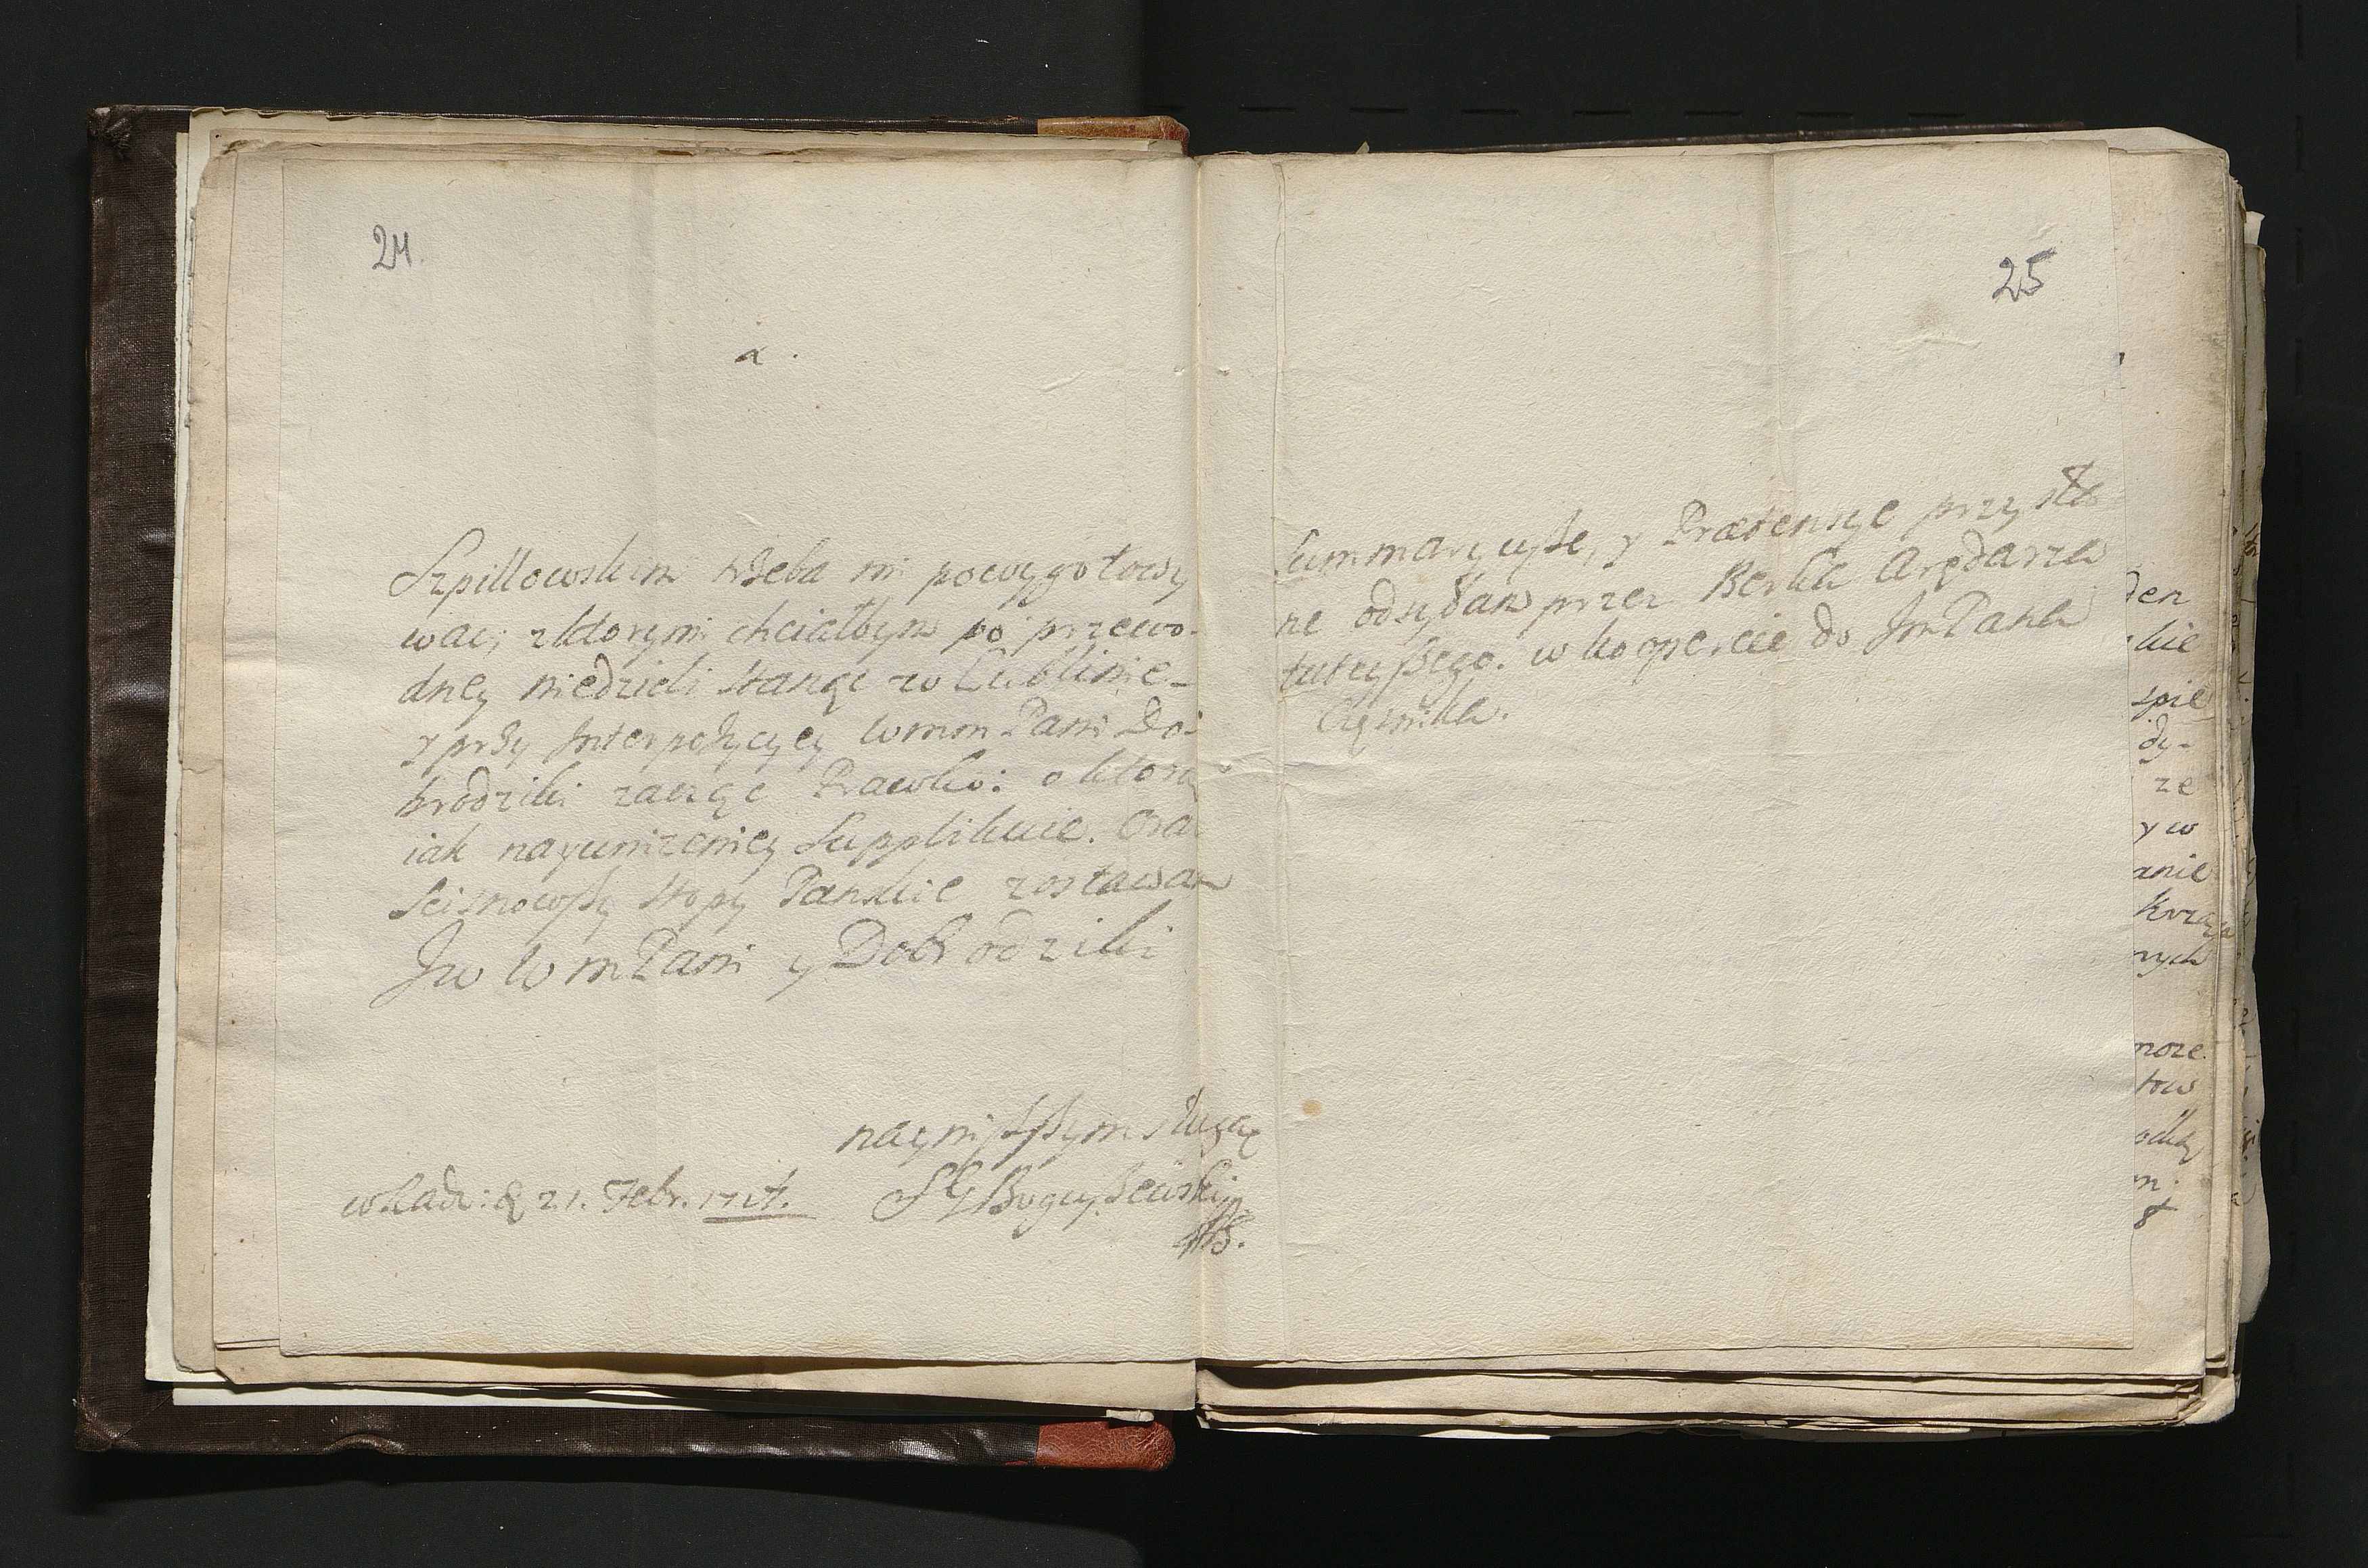 24.
a.
Szpillowskim trzeba mi powygotowy
wac, z ktorymi chciałbym po przewo-
dney niedzieli stanąc w Lublinie_
y przy Interpozycyey Wmm Pani Do-
brodziki zacząc Prawko: o ktorą
iak nayunizeniey Supplikuie. Oraz
scisnowszy stopy Panskie zostawam
Jw Wm Pani y Dobrodziki
nayniszszym sługą
Boguszewski
21. Febr.
25
Summaryusze, y Praetensye przysła
ne odsyłam przez Berka Arędarza
tuteyszego. w kopercie do Jm Pana
Czesnika.
den
kie
spie
dy-
ze
y w
anie
nych
moze.
tow
m.
8